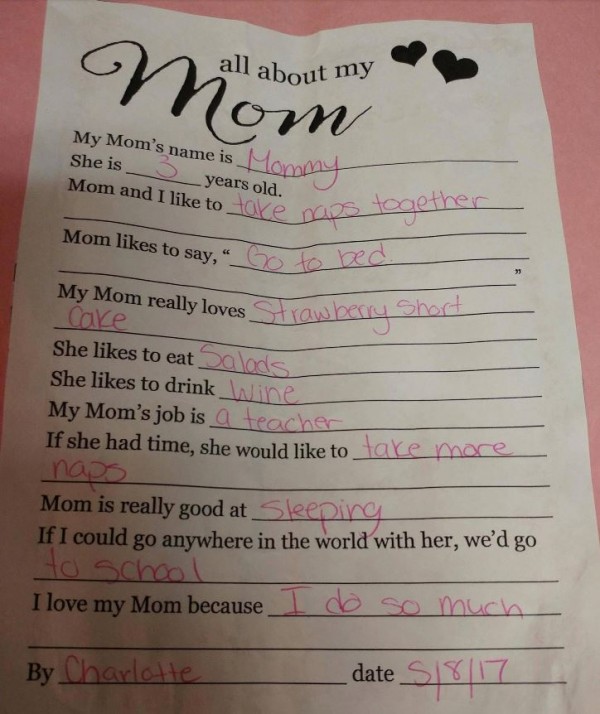 all about my
Mom
My Mom's name is Mommy
She is 3 years old.
Mom and I like to take naps together
Mom likes to say, "Go to bed.
"
My Mom really loves Strawberry Short
Cake
She likes to eat Salads
She likes to drink Wine
My Mom's job is a teacher
If she had time, she would like to take more
naps
Mom is really good at Sleeping
If I could go anywhere in the world with her, we'd go
to school
I love my Mom because I do so much
By Charlotte date 5/8/17